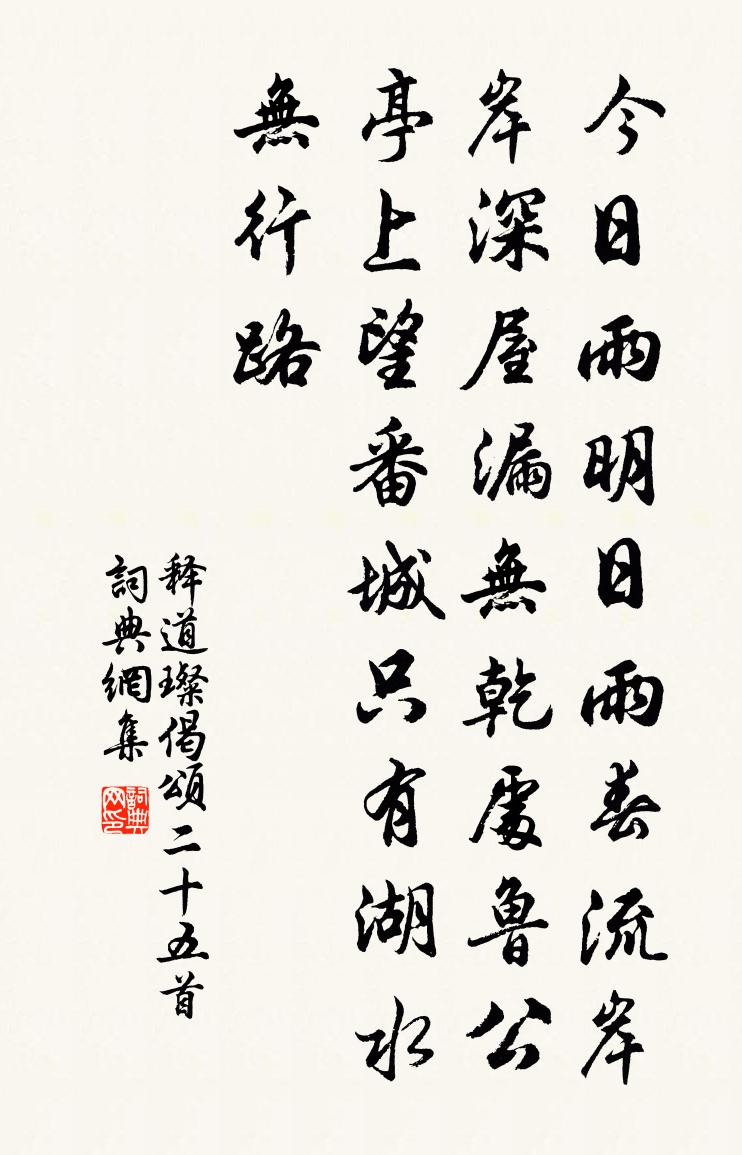 今日雨明日雨春流岸
岸深屋漏無乾處魯公
亭上望番城只有湖水
無行路
释道璨偈頌二十五首
詞典網集
詞典
网印